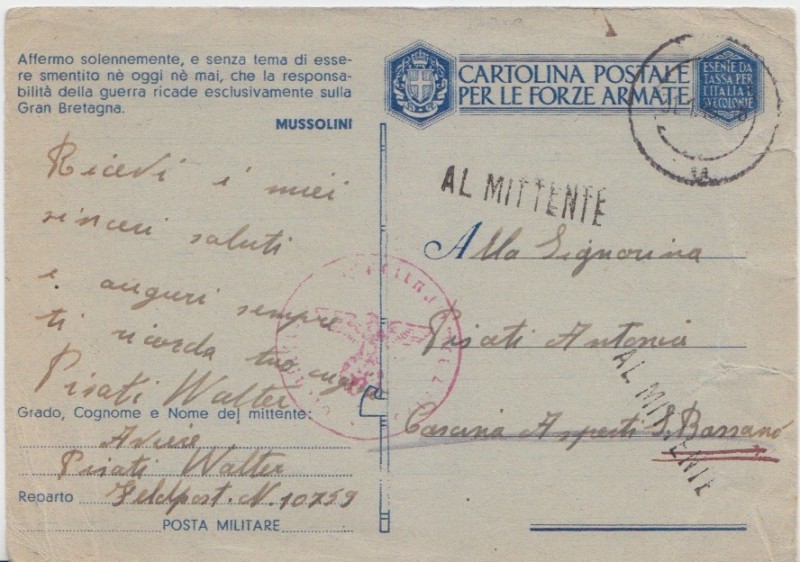 Affermo solennemente, e senza tema di esse-
re smentito nè oggi nè mai, che la responsa-
bilità della guerra ricade esclusivamente sulla
Gran Bretagna.
MUSSOLINI
Ricevi i miei
sinceri saluti
e auguri sempre
ti ricorda tuo
Pisati Walter
Grado, Cognome e Nome del mittente:
Aviere
Pisati Walter
Reparto Feldpost. N. 10759
POSTA MILITARE
CARTOLINA POSTALE
PER LE FORZE ARMATE
ESENTE DA
TASSA PER
L'ITALIA E
SUE COLONIE
AL MITTENTE
Alla Signorina
Pisati Antonia
AL MITTENTE
Cascina S. Bassano